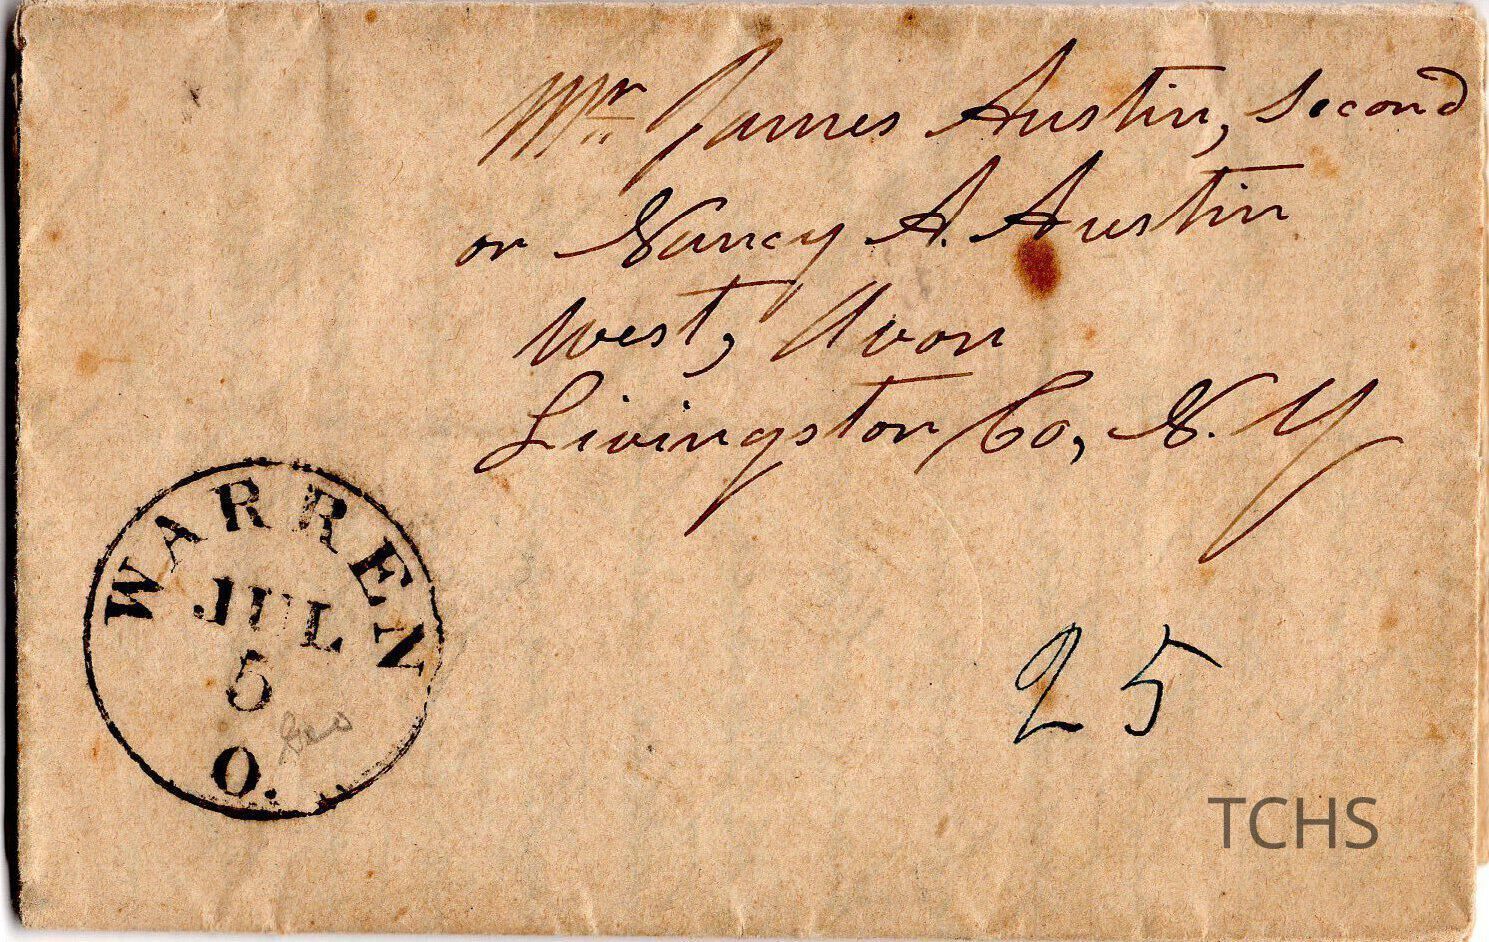 Mr James Austin, Second
or Nancy A. Austin
West, Avon
Livingston Co, N. Y
WARREN
JUL
5
O.
25
TCHS